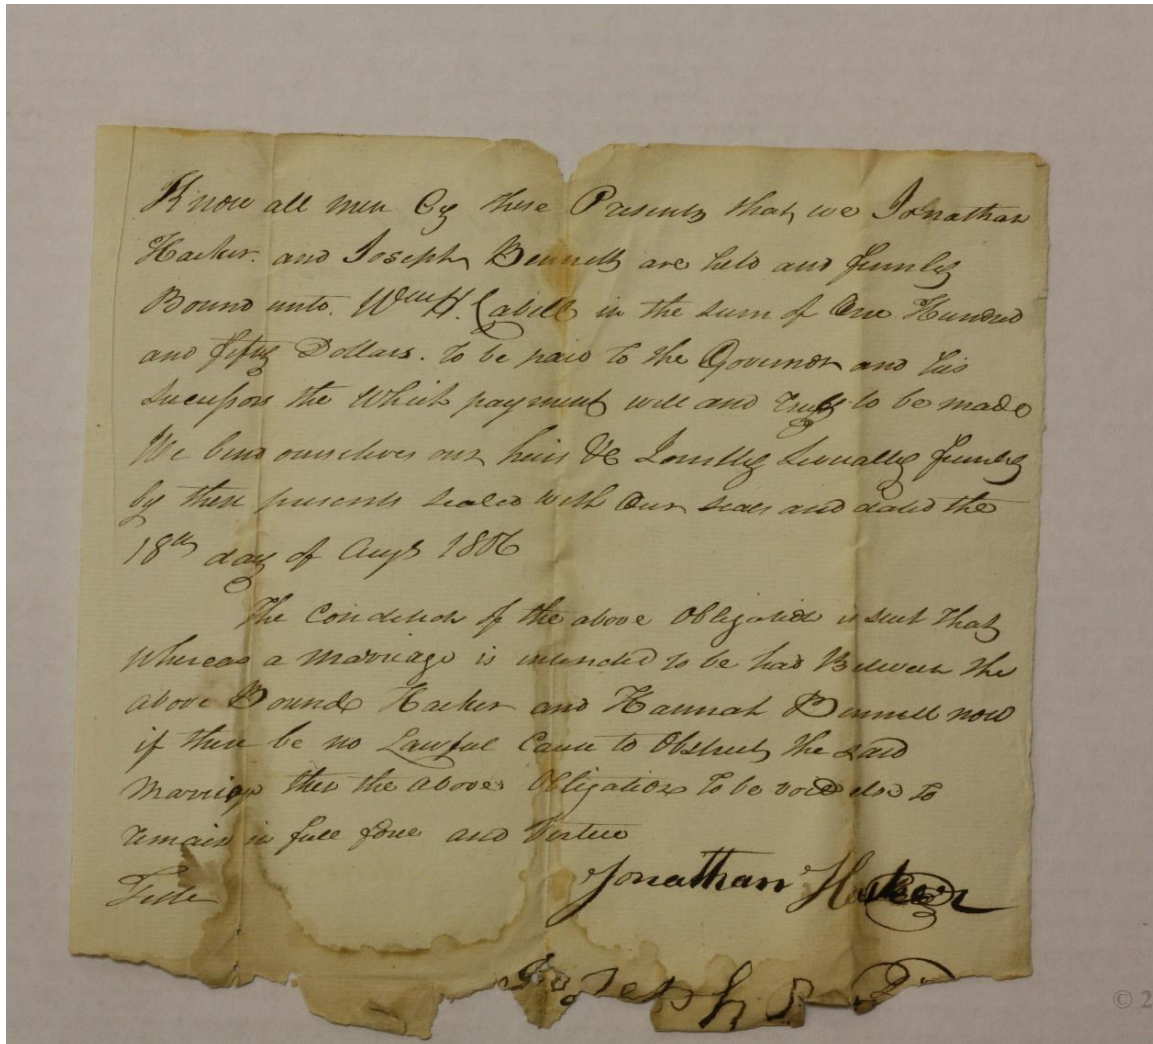 Know all men By these Presents that we Jonathan
Hacker. and Joseph Bennett are held and firmly
Bound unto. Wm H. Cabell in the sum of One Hundred
and fifty Dollars. to be paid to the Governor and his
Successors the Which payment well and Truly to be made
We bind ourselves our heirs &c Jointly Severally firmly
by these presents sealed with Our seals and dated the
18th day of Augt 1806
The Condition of the above Obligation is such That
whereas a marriage is intended to be had Between the
above Bound Hacker and Hannah Bennett now
if there be no Lawful Cause to Obstruct the said
Marriage then the above Obligation To be void else to
remain in full force and Virtue
Jonathan Hacker
Teste
Joseph B
© 2